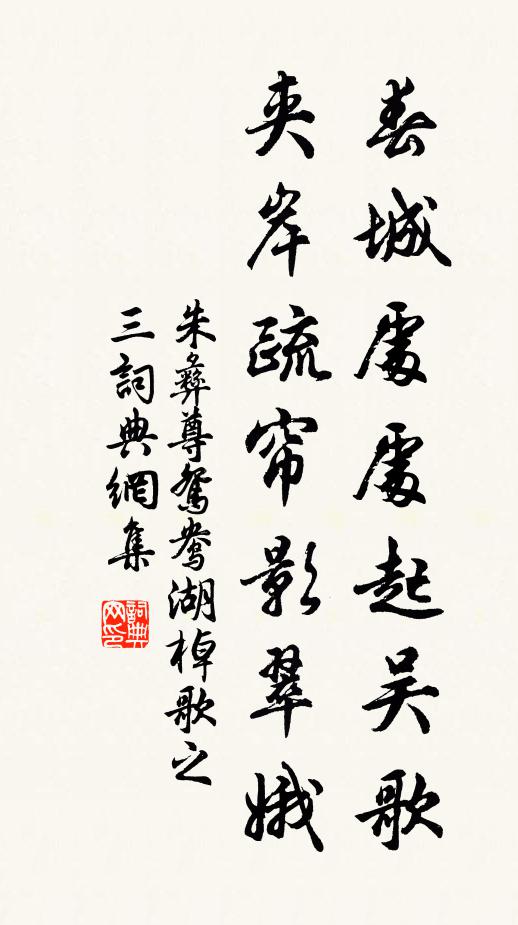 春城處處起吴歌
夹岸疏帘影翠娥
朱彝尊鴛鴦湖棹歌之
三詞典網集
詞典网印